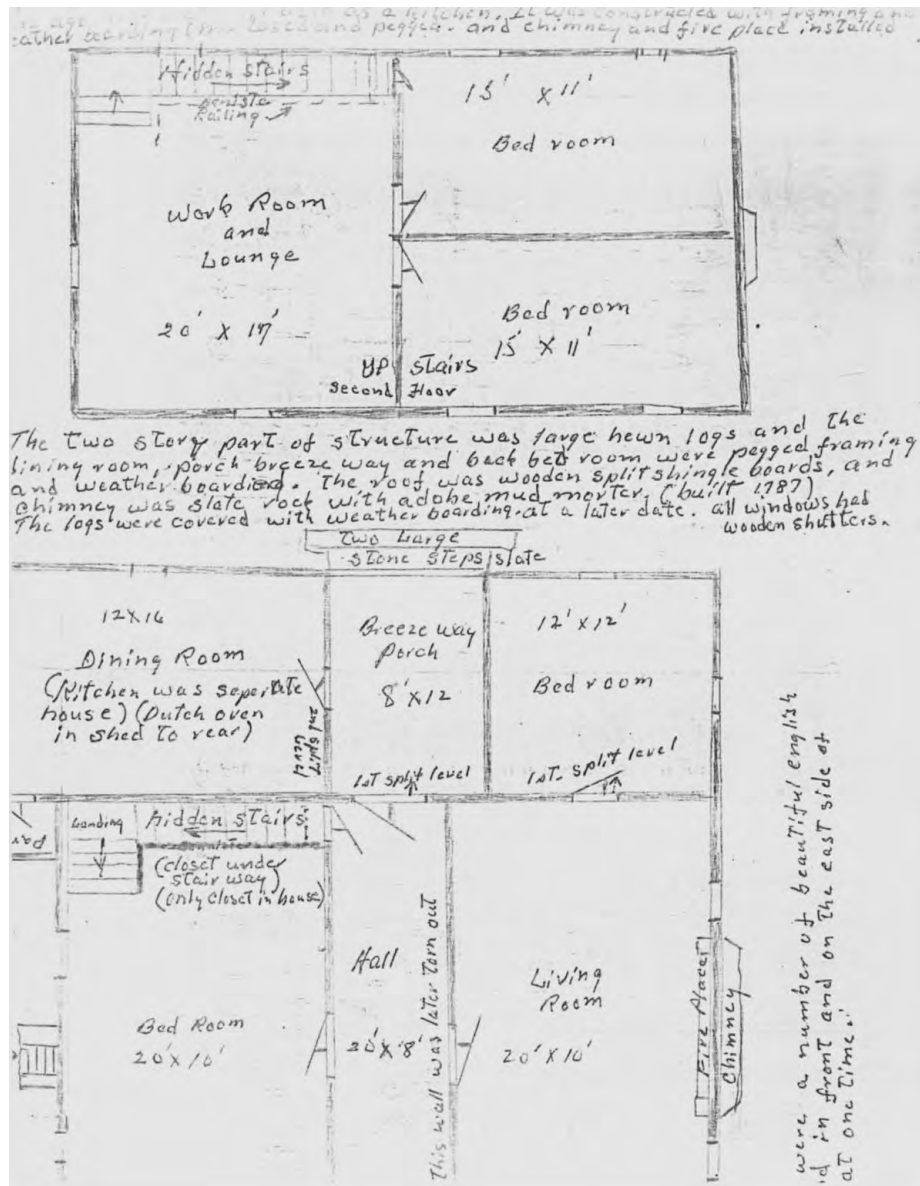 as a kitchen. It was constructed with framing and
eather boarding and pegged. and chimney and fire place installed
Hidden stairs
Railing
15' X 11'
Bed room
Work Room
and
Lounge
20' X 17'
Bed room
15' X 11'
UP stairs
Second Floor
The two story part of structure was large hewn logs and the
dining room, porch breeze way and back bed room were pegged framing
and weather boardied. The roof was wooden split shingle boards, and
chimney was slate rock with adobe mud morter. (built 1787)
The logs were covered with weather boarding at a later date. all windows had
wooden shutters.
Two Large
stone steps slate
12X16
Dining Room
(Kitchen was seperate
house) (Dutch oven
in shed to rear)
2nd split
level
Breeze way
Porch
8'X12
1st split level
12'X12'
Bed room
1st. split level
Par
Landing
hidden stairs
(closet under
stair way)
(only closet in house)
Bed Room
20'X10'
Hall
20'X8'
This wall was later torn out
Living
Room
20'X10'
Fire Place
Chimney
were a number of beautiful english
d in front and on the east side of
at one time.